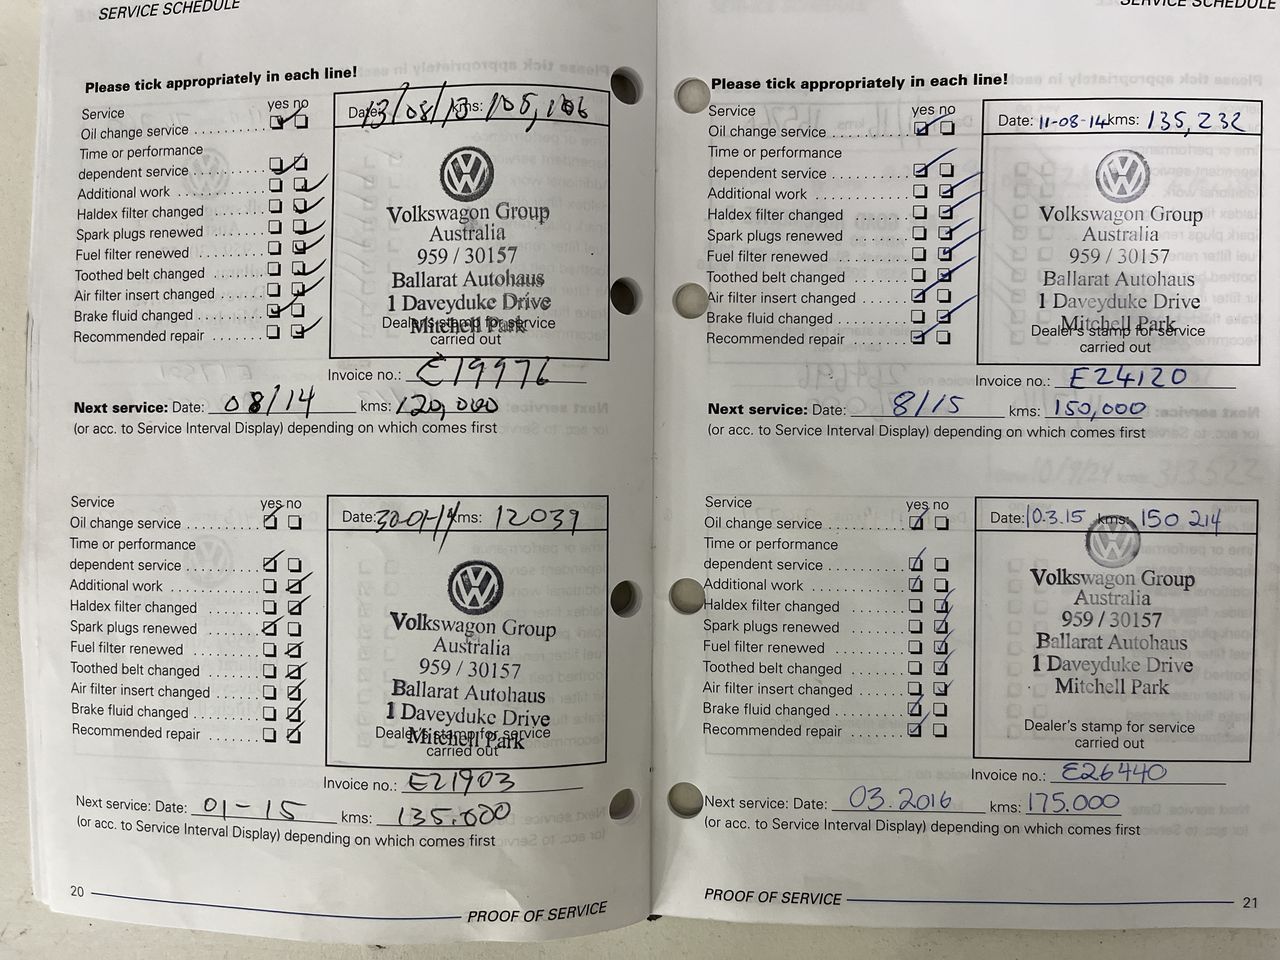 SERVICE SCHEDULE
Please tick appropriately in each line!
Service yes no
Oil change service
Time or performance
dependent service
Additional work
Haldex filter changed
Spark plugs renewed
Fuel filter renewed
Toothed belt changed
Air filter insert changed
Brake fluid changed
Recommended repair
Date: 13/08/13 kms: 105,106
Volkswagon Group
Australia
959 / 30157
Ballarat Autohaus
1 Daveyduke Drive
Mitchell Park
Dealer's stamp for service
carried out
Invoice no.: E19976
Next service: Date: 08/14 kms: 120,000
(or acc. to Service Interval Display) depending on which comes first
Service yes no
Oil change service
Time or performance
dependent service
Additional work
Haldex filter changed
Spark plugs renewed
Fuel filter renewed
Toothed belt changed
Air filter insert changed
Brake fluid changed
Recommended repair
Date: 30-01-14 kms: 12039
Volkswagon Group
Australia
959 / 30157
Ballarat Autohaus
1 Daveyduke Drive
Mitchell Park
Dealer's stamp for service
carried out
Invoice no.: E21903
Next service: Date: 01-15 kms: 135.000
(or acc. to Service Interval Display) depending on which comes first
20
PROOF OF SERVICE
SERVICE SCHEDULE
Please tick appropriately in each line!
Service yes no
Oil change service
Time or performance
dependent service
Additional work
Haldex filter changed
Spark plugs renewed
Fuel filter renewed
Toothed belt changed
Air filter insert changed
Brake fluid changed
Recommended repair
Date: 11-08-14 kms: 135,232
Volkswagon Group
Australia
959 / 30157
Ballarat Autohaus
1 Daveyduke Drive
Mitchell Park
Dealer's stamp for service
carried out
Invoice no.: E24120
Next service: Date: 8/15 kms: 150,000
(or acc. to Service Interval Display) depending on which comes first
Service yes no
Oil change service
Time or performance
dependent service
Additional work
Haldex filter changed
Spark plugs renewed
Fuel filter renewed
Toothed belt changed
Air filter insert changed
Brake fluid changed
Recommended repair
Date: 10.3.15 kms: 150 214
Volkswagon Group
Australia
959 / 30157
Ballarat Autohaus
1 Daveyduke Drive
Mitchell Park
Dealer's stamp for service
carried out
Invoice no.: E26440
Next service: Date: 03.2016 kms: 175.000
(or acc. to Service Interval Display) depending on which comes first
PROOF OF SERVICE
21